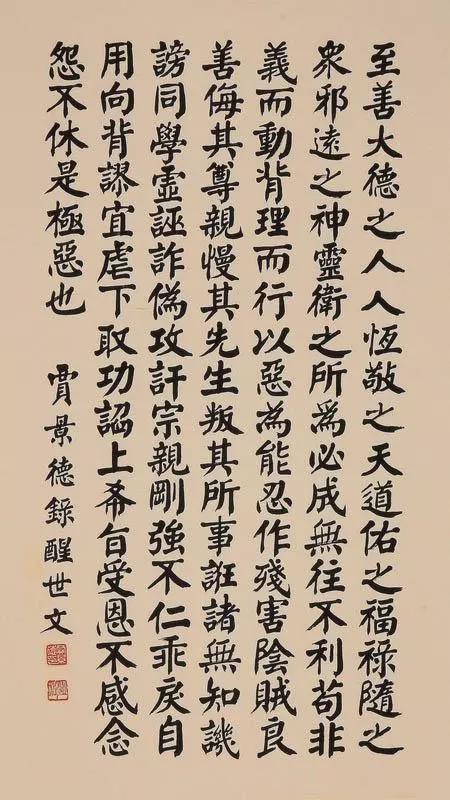 至善大德之人人恆敬之天道佑之福祿隨之
衆邪遠之神靈衛之所爲必成無往不利苟非
義而動背理而行以惡為能忍作殘害陰賊良
善侮其尊親慢其先生叛其所事誑諸無知譏
謗同學虛誣詐偽攻訐宗親剛強不仁乖戾自
用向背謬宜虐下取功諂上希旨受恩不感念
怨不休是極惡也
賈景德錄醒世文